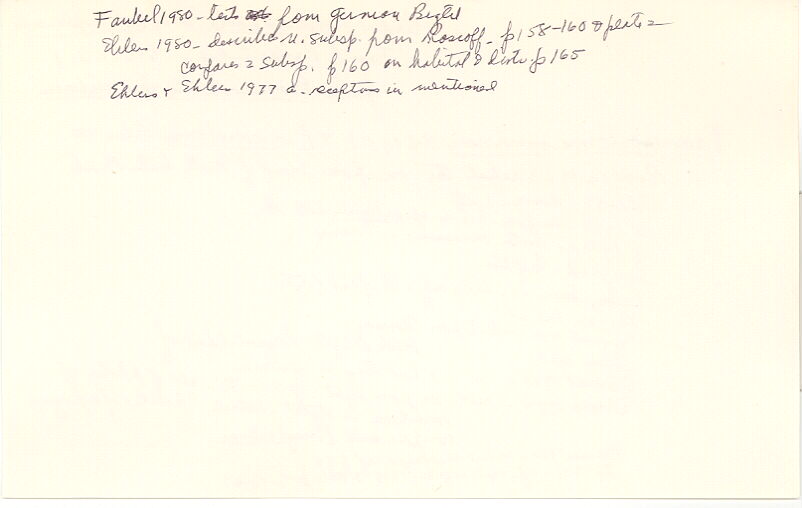 Faubel 1980 - lists from German Bight
Ehlers 1980 - describes n. subsp. from Roscoff - p 158-160 & plate 2
compares 2 subsp. p 160 on habitat & distr p 165
Ehlers & Ehlers 1977 a - receptors in mentioned